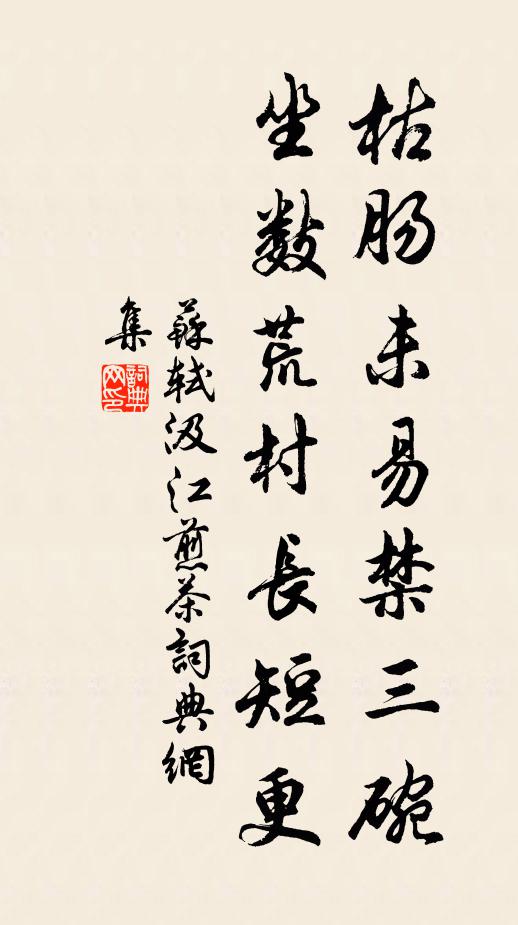 枯肠未易禁三碗
坐数荒村長短更
蘇軾汲江煎茶詞典網
集
詞典網印